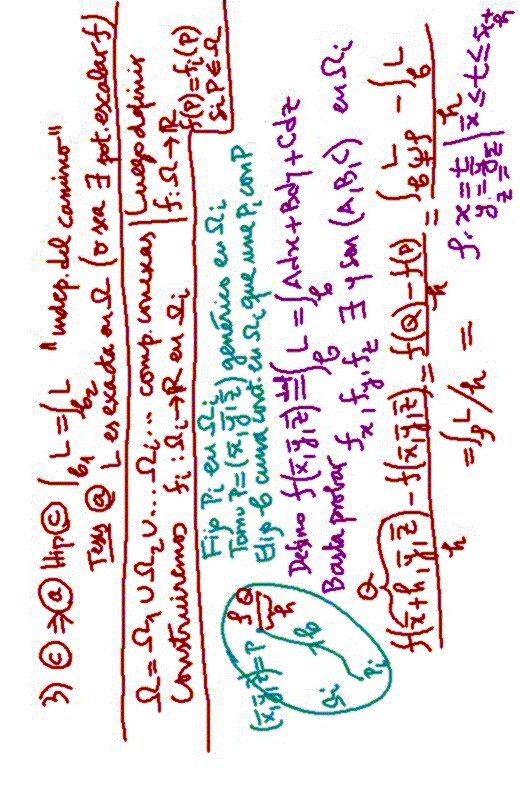 3) ⓒ ⇒ ⓐ Hip ⓒ ∫_{b₁} L = ∫_{b₂} L "indep. del camino"
Tesis ⓐ L es exacta en Ω (o sea ∃ pot. escalar f)
Ω = Ω₁ ∪ Ω₂ ∪ ... Ωᵢ ... comp. conexas
Construiremos fᵢ: Ωᵢ → ℝ en Ωᵢ
Luego definir
f: Ω → ℝ
f(P) = fᵢ(P)
si P ∈ Ωᵢ
Fijo Pᵢ en Ωᵢ
Tomo P = (x̄, ȳ, z̄) genérico en Ωᵢ
Elijo b curva cont. en Ωᵢ que une Pᵢ con P
(x̄, ȳ, z̄) = P
ρ Q
h
b
Ωᵢ
Pᵢ
Defino f(x̄, ȳ, z̄) ≝ ∫_b L = ∫_b Adx + Bdy + Cdz
Basta probar f_x, f_y, f_z ∃ y son (A, B, C) en Ωᵢ
Q
f(x̄+h, ȳ, z̄) - f(x̄, ȳ, z̄) / h = f(Q) - f(P) / h = ∫_{b+ρ} L - ∫_b L / h
= ∫_ρ L / h =
ρ: x = t
y = ȳ
z = z̄
x̄ ≤ t ≤ x̄ + h